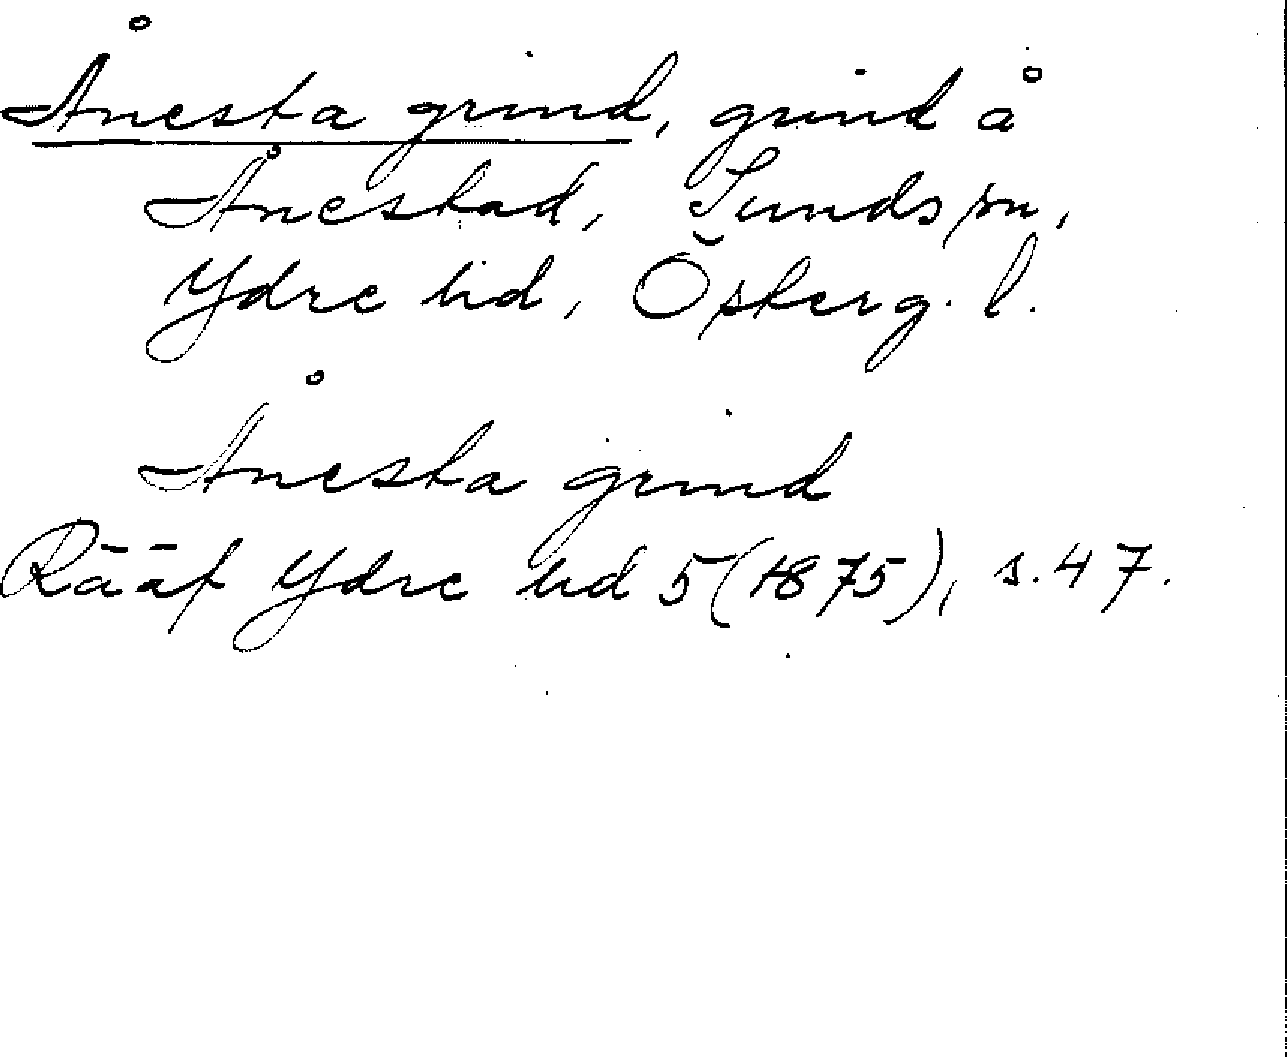 Ånesta grind, grind å
Ånestad, Sunds sn,
Ydre hd, Österg. l.
Ånesta grind
Rääf Ydre hd 5 (1875), s. 47.